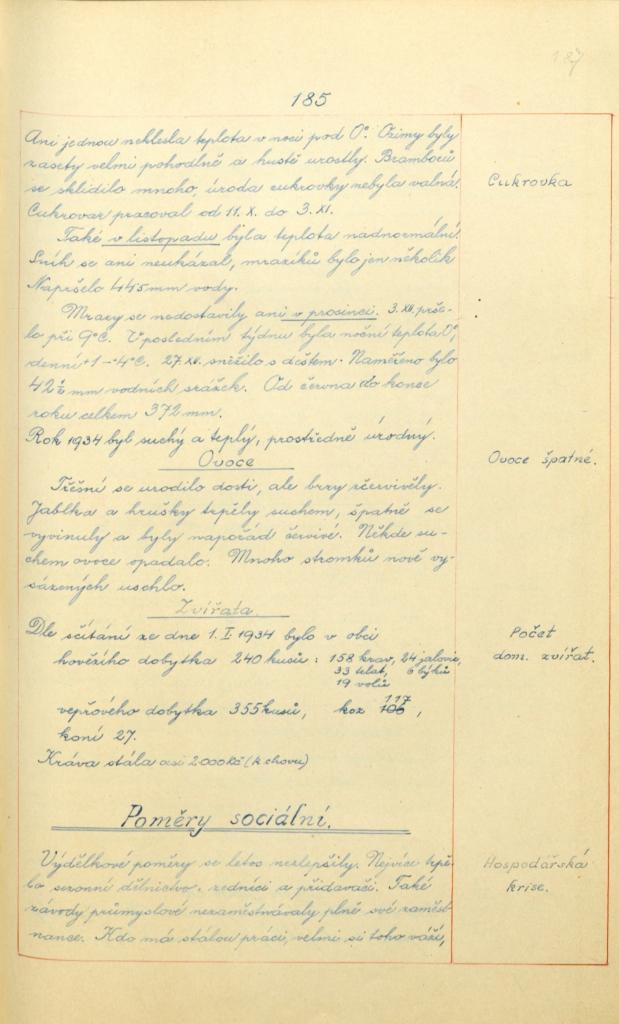 187
185
Ani jednou neklesla teplota v noci pod 0°. Ozimy byly
zasety velmi pohodlně a hustě vzrostly. Bramborů
se sklidilo mnoho, úroda cukrovky nebyla valná.
Cukrovka
Cukrovar pracoval od 11. X. do 3. XI.
Také v listopadu byla teplota nadnormální.
Sníh se ani neukázal, mrazíků bylo jen několik
Napršelo 44.5 mm vody.
Mrazy se nedostavily ani v prosinci. 3. XII. prše-
lo při 9°C. V posledním týdnu byla noční teplota 0°,
denní +1 – 4°C. 27. XII. sněžilo s deštěm. Naměřeno bylo
42 ½ mm vodních srážek. Od června do konce
roku celkem 372 mm.
Rok 1934 byl suchý a teplý, prostředně úrodný.
Ovoce
Ovoce špatné.
Třešní se urodilo dosti, ale brzy zčervivěly.
Jablka a hrušky trpěly suchem, špatně se
vyvinuly a byly napořád červivé. Někde su-
chem ovoce opadalo. Mnoho stromků nově vy-
sázených uschlo.
Zvířata
Dle sčítání ze dne 1. I. 1934 bylo v obci
Počet
dom. zvířat.
hovězího dobytka 240 kusů: 158 krav, 24 jalovic,
33 telat, 6 býků
19 volů
vepřového dobytka 355 kusů, koz 117,
koní 27.
Kráva stála asi 2000 Kč (k chovu)
Poměry sociální.
Výdělkové poměry se letos nezlepšily. Nejvíce trpě-
Hospodářská
krise.
lo sezonní dělnictvo, zedníci a přidavači. Také
závody průmyslové nezaměstnávaly plně své zaměst-
nance. Kdo má stálou práci, velmi si toho váží,